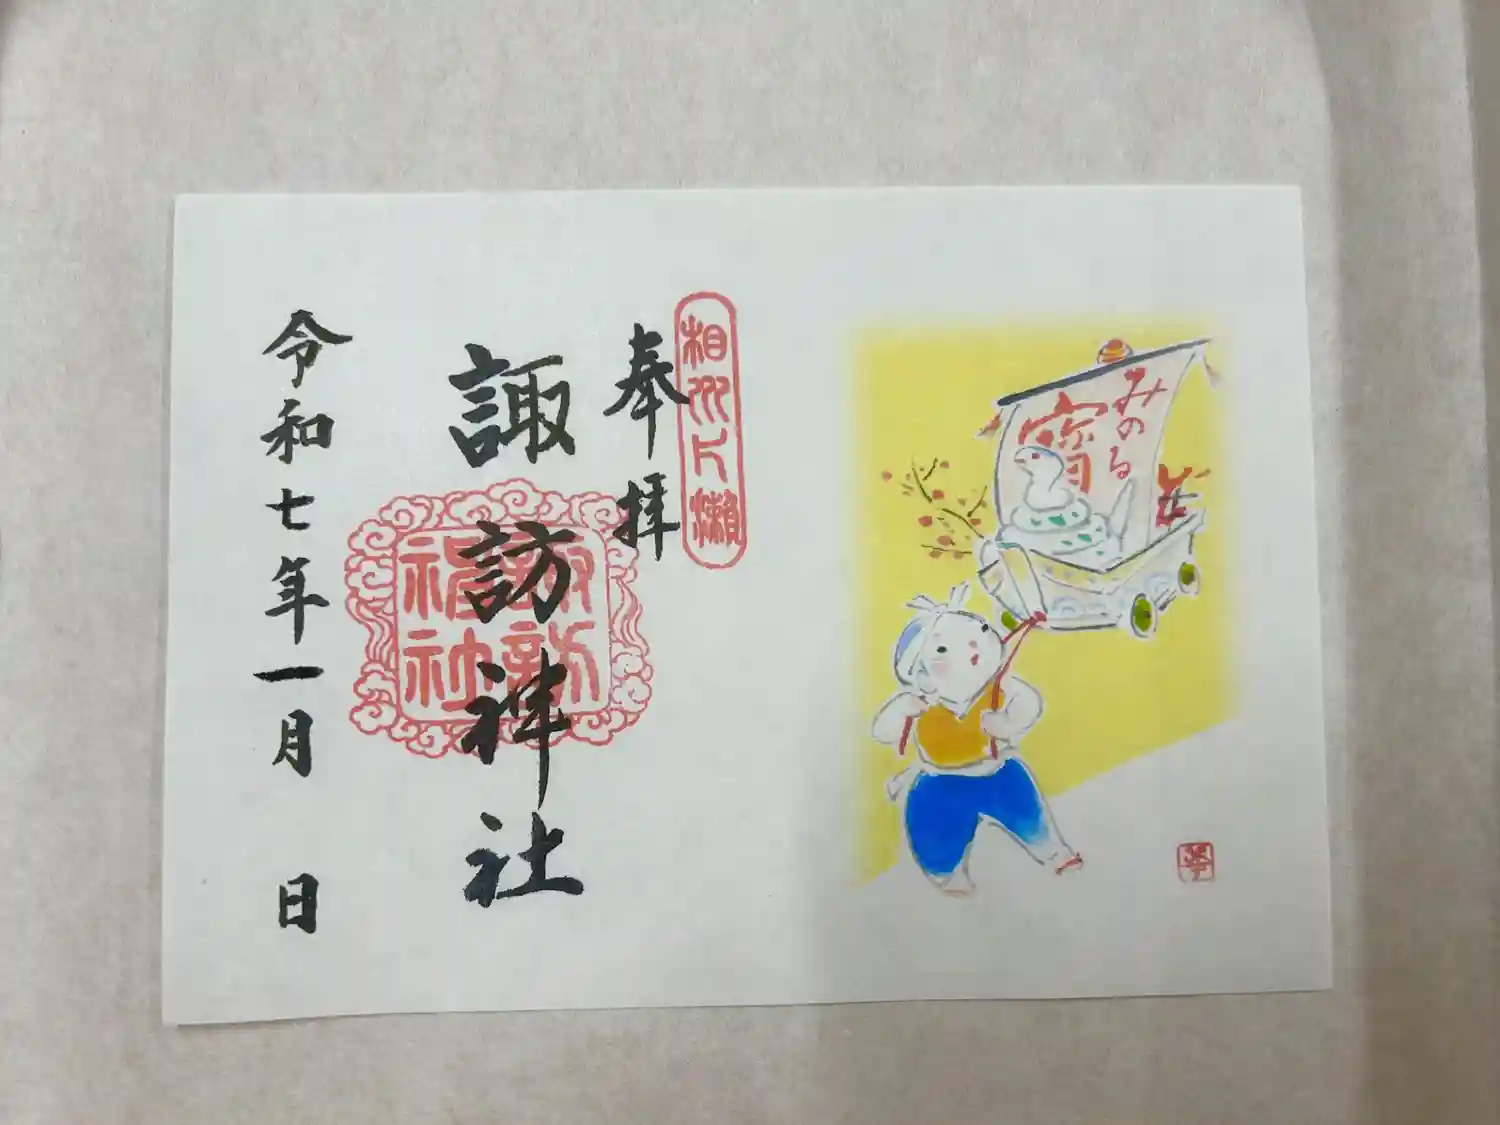 みのる
寳
相州片瀬
奉拝
諏訪神社
諏訪神社
令和七年一月 日